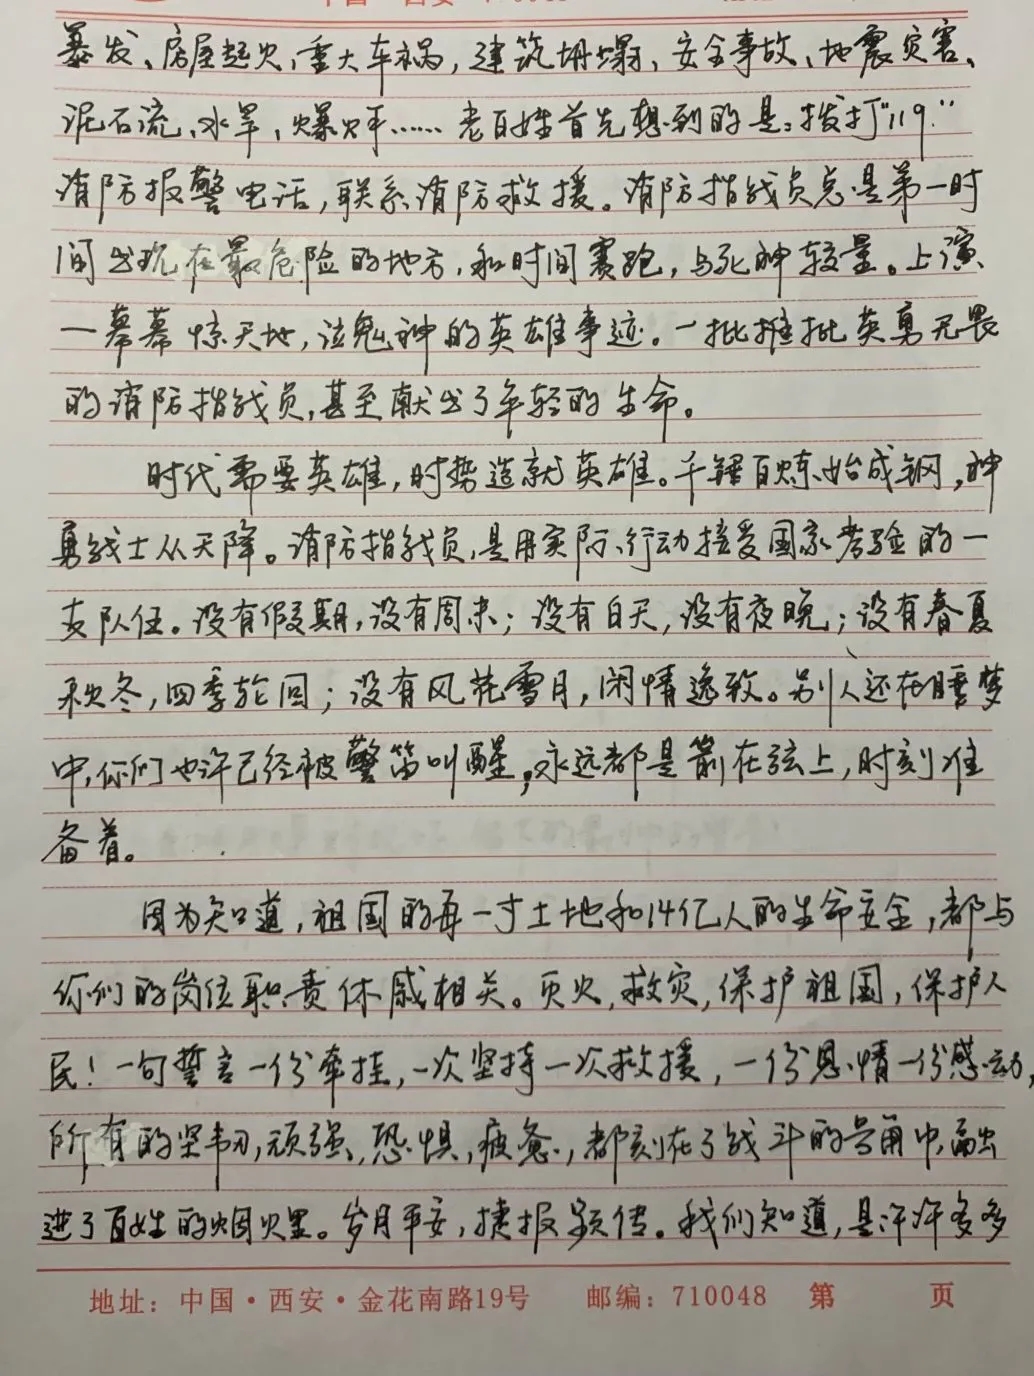 暴发、房屋起火、重大车祸，建筑坍塌、安全事故、地震灾害、
泥石流、水旱、爆炸……老百姓首先想到的是：拨打“119”
消防报警电话，联系消防救援。消防指战员总是第一时
间出现在最危险的地方，和时间赛跑，与死神较量。上演
一幕幕惊天地，泣鬼神的英雄事迹。一批批英勇无畏
的消防指战员，甚至献出了年轻的生命。
时代需要英雄，时势造就英雄。千锤百炼始成钢，神
勇战士从天降。消防指战员，是用实际行动接受国家考验的一
支队伍。没有假期，没有周末；没有白天，没有夜晚；没有春夏
秋冬，四季轮回；没有风花雪月，闲情逸致。别人还在睡梦
中，你们也许已经被警笛叫醒，永远都是箭在弦上，时刻准
备着。
因为知道，祖国的每一寸土地和14亿人的生命安全，都与
你们的岗位职责休戚相关。灭火，救灾，保护祖国，保护人
民！一句誓言一份牵挂，一次坚持一次救援，一份恩情一份感动，
所有的坚韧，顽强，恐惧，疲惫，都刻在了战斗的号角中，融
进了百姓的烟火里。岁月平安，捷报频传。我们知道，是许许多多
地址：中国·西安·金花南路19号 邮编：710048 第 页